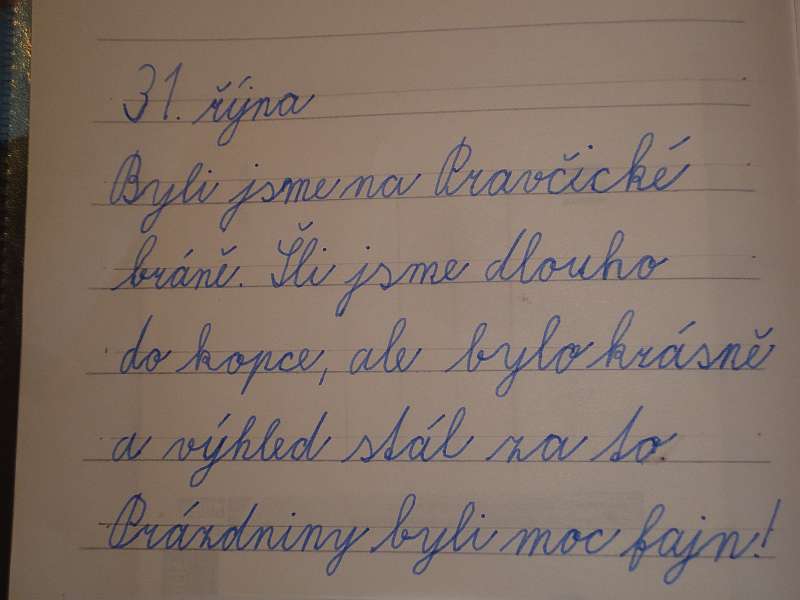 31. října
Byli jsme na Pravčické
bráně. Šli jsme dlouho
do kopce, ale bylo krásně
a výhled stál za to.
Prázdniny byli moc fajn!